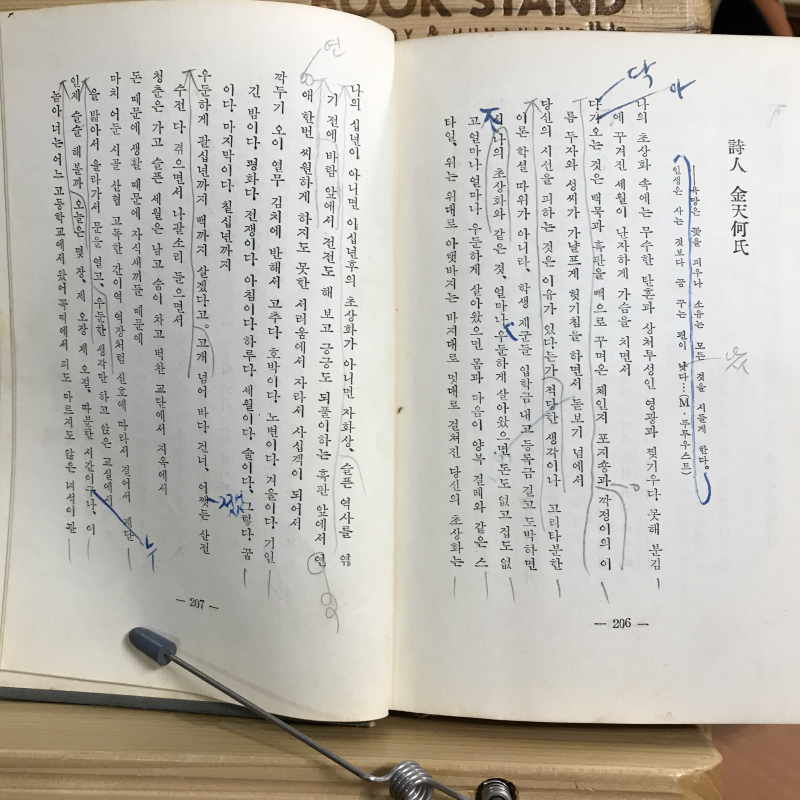 BOOK STAND
詩人 金天何氏
──욕망은 꽃을 피우나 소유는 모든 것을 시들게 한다.
인생은 사는 것보다 꿈 꾸는 편이 낫다…(M·푸루우스트)
나의 초상화 속에는 무수한 탄흔과 상처투성인 영광과 찢기우다 못해 분김
에 꾸겨진 세월이 난자하게 가슴을 치면서
다가오는 것은 백묵과 흑판을 빽으로 꾸며온 체인지 포지숑과 깍정이의 이
름 투자와 성씨가 가냘프게 헛기침을 하면서 돋보기 넘에서
당신의 시선을 피하는 것은 이유가 있다든가 적당한 생각이나 고리타분한
이론 학설 따위가 아니라, 학생 제군들 입학금 내고 등록금 걸고 도박하면
나의 초상화와 같은 것, 얼마나 우둔하게 살아왔으면 돈도 없고 집도 없
고 얼마나 얼마나 우둔하게 살아왔으면 몸과 마음이 양복 걸레와 같은 스
타일, 위는 위대로 아랫바지는 바지대로 멋대로 걸쳐진 당신의 초상화는
— 206 —
나의 십년이 아니면 이십년후의 초상화가 아니면 자화상, 슬픈 역사를 엮
기 전에 바람 앞에서 전전도 해 보고 긍긍도 되풀이하는 흑판 앞에서 연
애 한번 씨원하게 하지도 못한 서러움에서 자라서 사십객이 되어서
깍두기 오이 열무 김치에 반해서 고추다 호박이다 노변이다 겨울이다 기인
긴 밤이다 평화다 전쟁이다 아침이다 하루다 세월이다 술이다, 그렇다 꿈
이다 마지막이다 칠십년까지
우둔하게 팔십년까지 백까지 살겠다고. 고개 넘어 바다 건너, 어쨋든 산전
수전 다 겪으면서 나팔소리 들으면서
청춘은 가고 슬픈 세월은 남고 숨이 차고 벅찬 교단에서 지옥에서
돈 때문에 생활 때문에 자식새끼들 때문에
마치 어둔 시골 산협 고독한 간이역 역장처럼 신호에 따라서 걸어서 계단
을 밟아서 올라가서 문을 열고, 우둔한 생각만 하고 앉은 교실에서
인제 슬슬 해볼까 오늘은 몇 장, 제 오장 제 오절, 따분한 시간이구나, 이
놈아 너는 어느 고등학교에서 왔어 꼭떡에서 피도 마르지도 않은 녀석이 관
— 207 —
연
닥
아
쨌
누